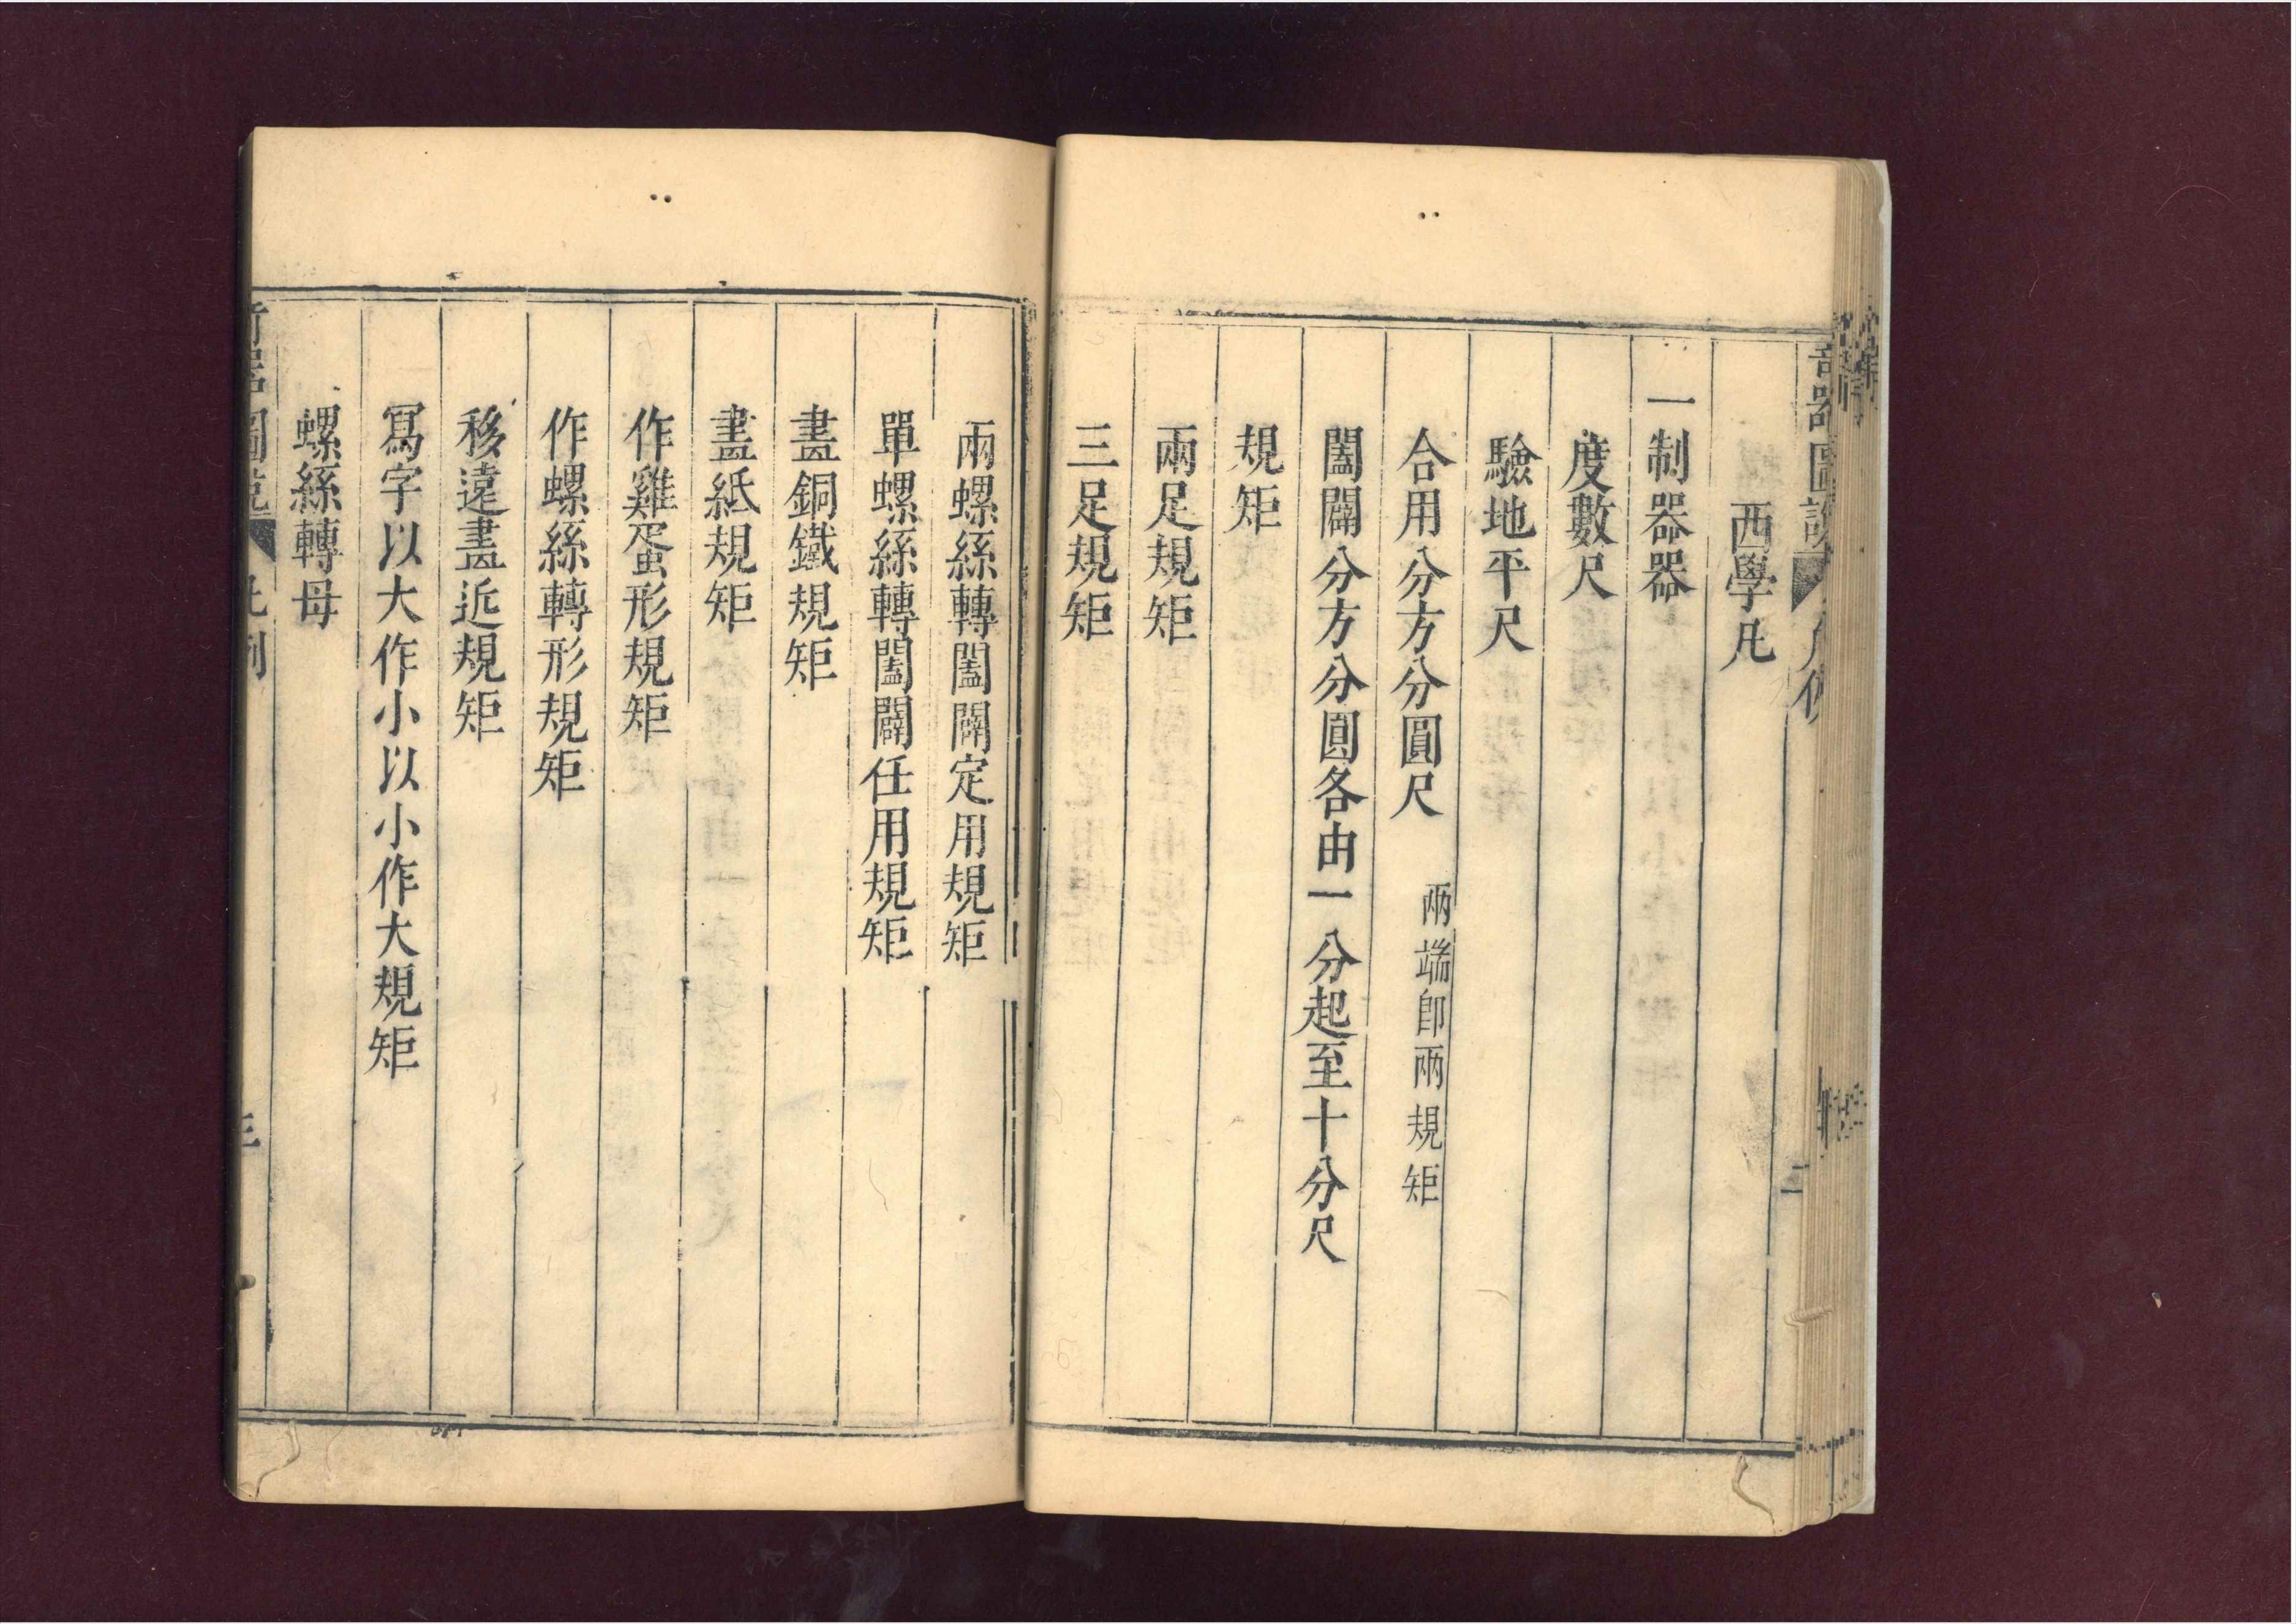 奇器圖說
二
西學凡
一制器器
度數尺
驗地平尺
合用分方分圓尺 兩端卽兩規矩
闔闢分方分圓各由一分起至十分尺
規矩
兩足規矩
三足規矩
兩螺絲轉闔闢定用規矩
單螺絲轉闔闢任用規矩
畫銅鐵規矩
畫紙規矩
作雞蛋形規矩
作螺絲轉形規矩
移遠畫近規矩
寫字以大作小以小作大規矩
螺絲轉母
凡例
三